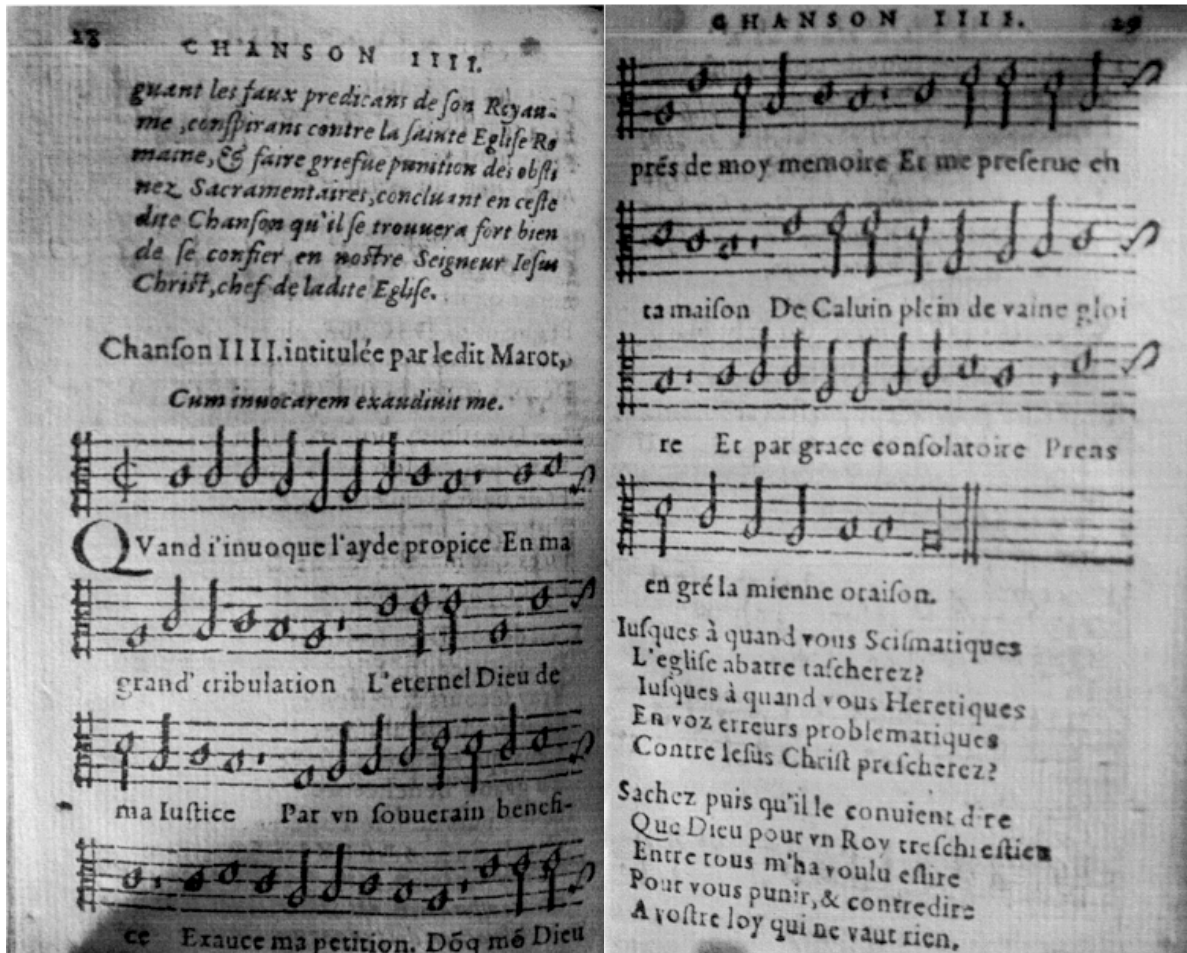 28
CHANSON IIII.
guant les faux predicans de ſon Royau-
me, conſpirans contre la ſainte Egliſe Ro
maine, & faire griefue punition des obſti
nez Sacramentaires, concluant en ceſte
dite Chanſon qu'il ſe trouuera fort bien
de ſe confier en noſtre Seigneur Ieſus
Chriſt, chef de ladite Egliſe.
Chanſon IIII. intitulée par ledit Marot,
Cum inuocarem exaudiuit me.
QVand i'inuoque l'ayde propice En ma
grand' tribulation L'eternel Dieu de
ma Iuſtice Par vn ſouuerain benefi-
ce Exauce ma petition. Dõq mõ Dieu
CHANSON IIII.
29
prés de moy memoire Et me preſerue en
ta maiſon De Caluin plein de vaine gloi
re Et par grace conſolatoire Prens
en gré la mienne oraiſon.
Iuſques à quand vous Sciſmatiques
L'egliſe abatre taſcherez?
Iuſques à quand vous Heretiques
En voz erreurs problematiques
Contre Ieſus Chriſt preſcherez?
Sachez puis qu'il le conuient dire
Que Dieu pour vn Roy treſchreſtien
Entre tous m'ha voulu eſlire
Pour vous punir, & contredire
A voſtre loy qui ne vaut rien.